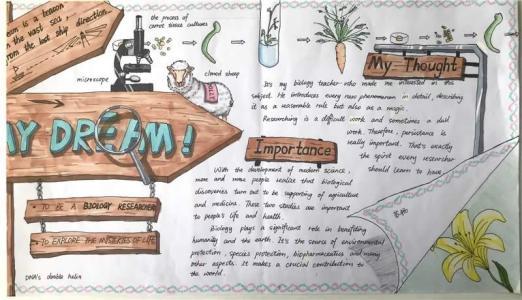 dream is a beacon
in the vast sea,
from the lost ship direction
the process of
carrot tissue cultures
microscope
cloned sheep
MY DREAM!
TO BE A BIOLOGY RESEARCHER
TO EXPLORE THE MYSTERIES OF LIFE
DNA's double helix
My Thought
It's my biology teacher who made me interested in the
subject. He introduces every new phenomenon in detail, describing
it as a reasonable rule but also as a magic.
Researching is a difficult work and sometimes a dull
work. Therefore, persistance is
really important. That's exactly
the spirit every researcher
should learn to have.
Importance
With the development of modern science,
more and more people realize that biological
discoveries turn out to be supporting of agriculture
and medicine. These two studies are important
to people's life and health.
Biology plays a significant role in benefiting
humanity and the earth. It's the source of environmental
protection, species protection, biopharmaceutics and many
other aspects. It makes a crucial contribution to
the world.